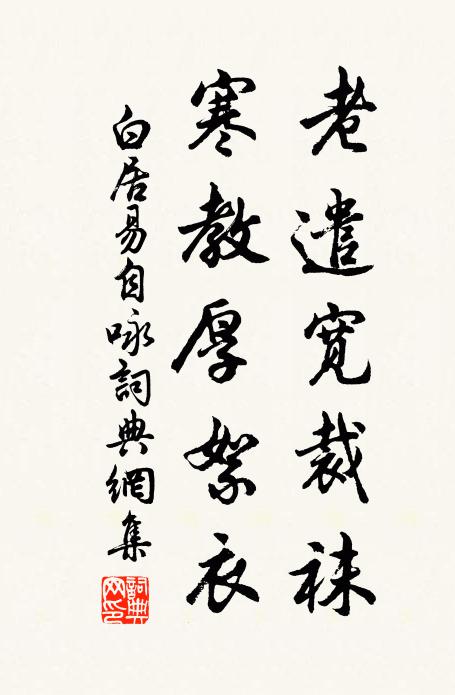 老遣寬裁袜
寒教厚絮衣
白居易自咏詞典網集
詞典网印